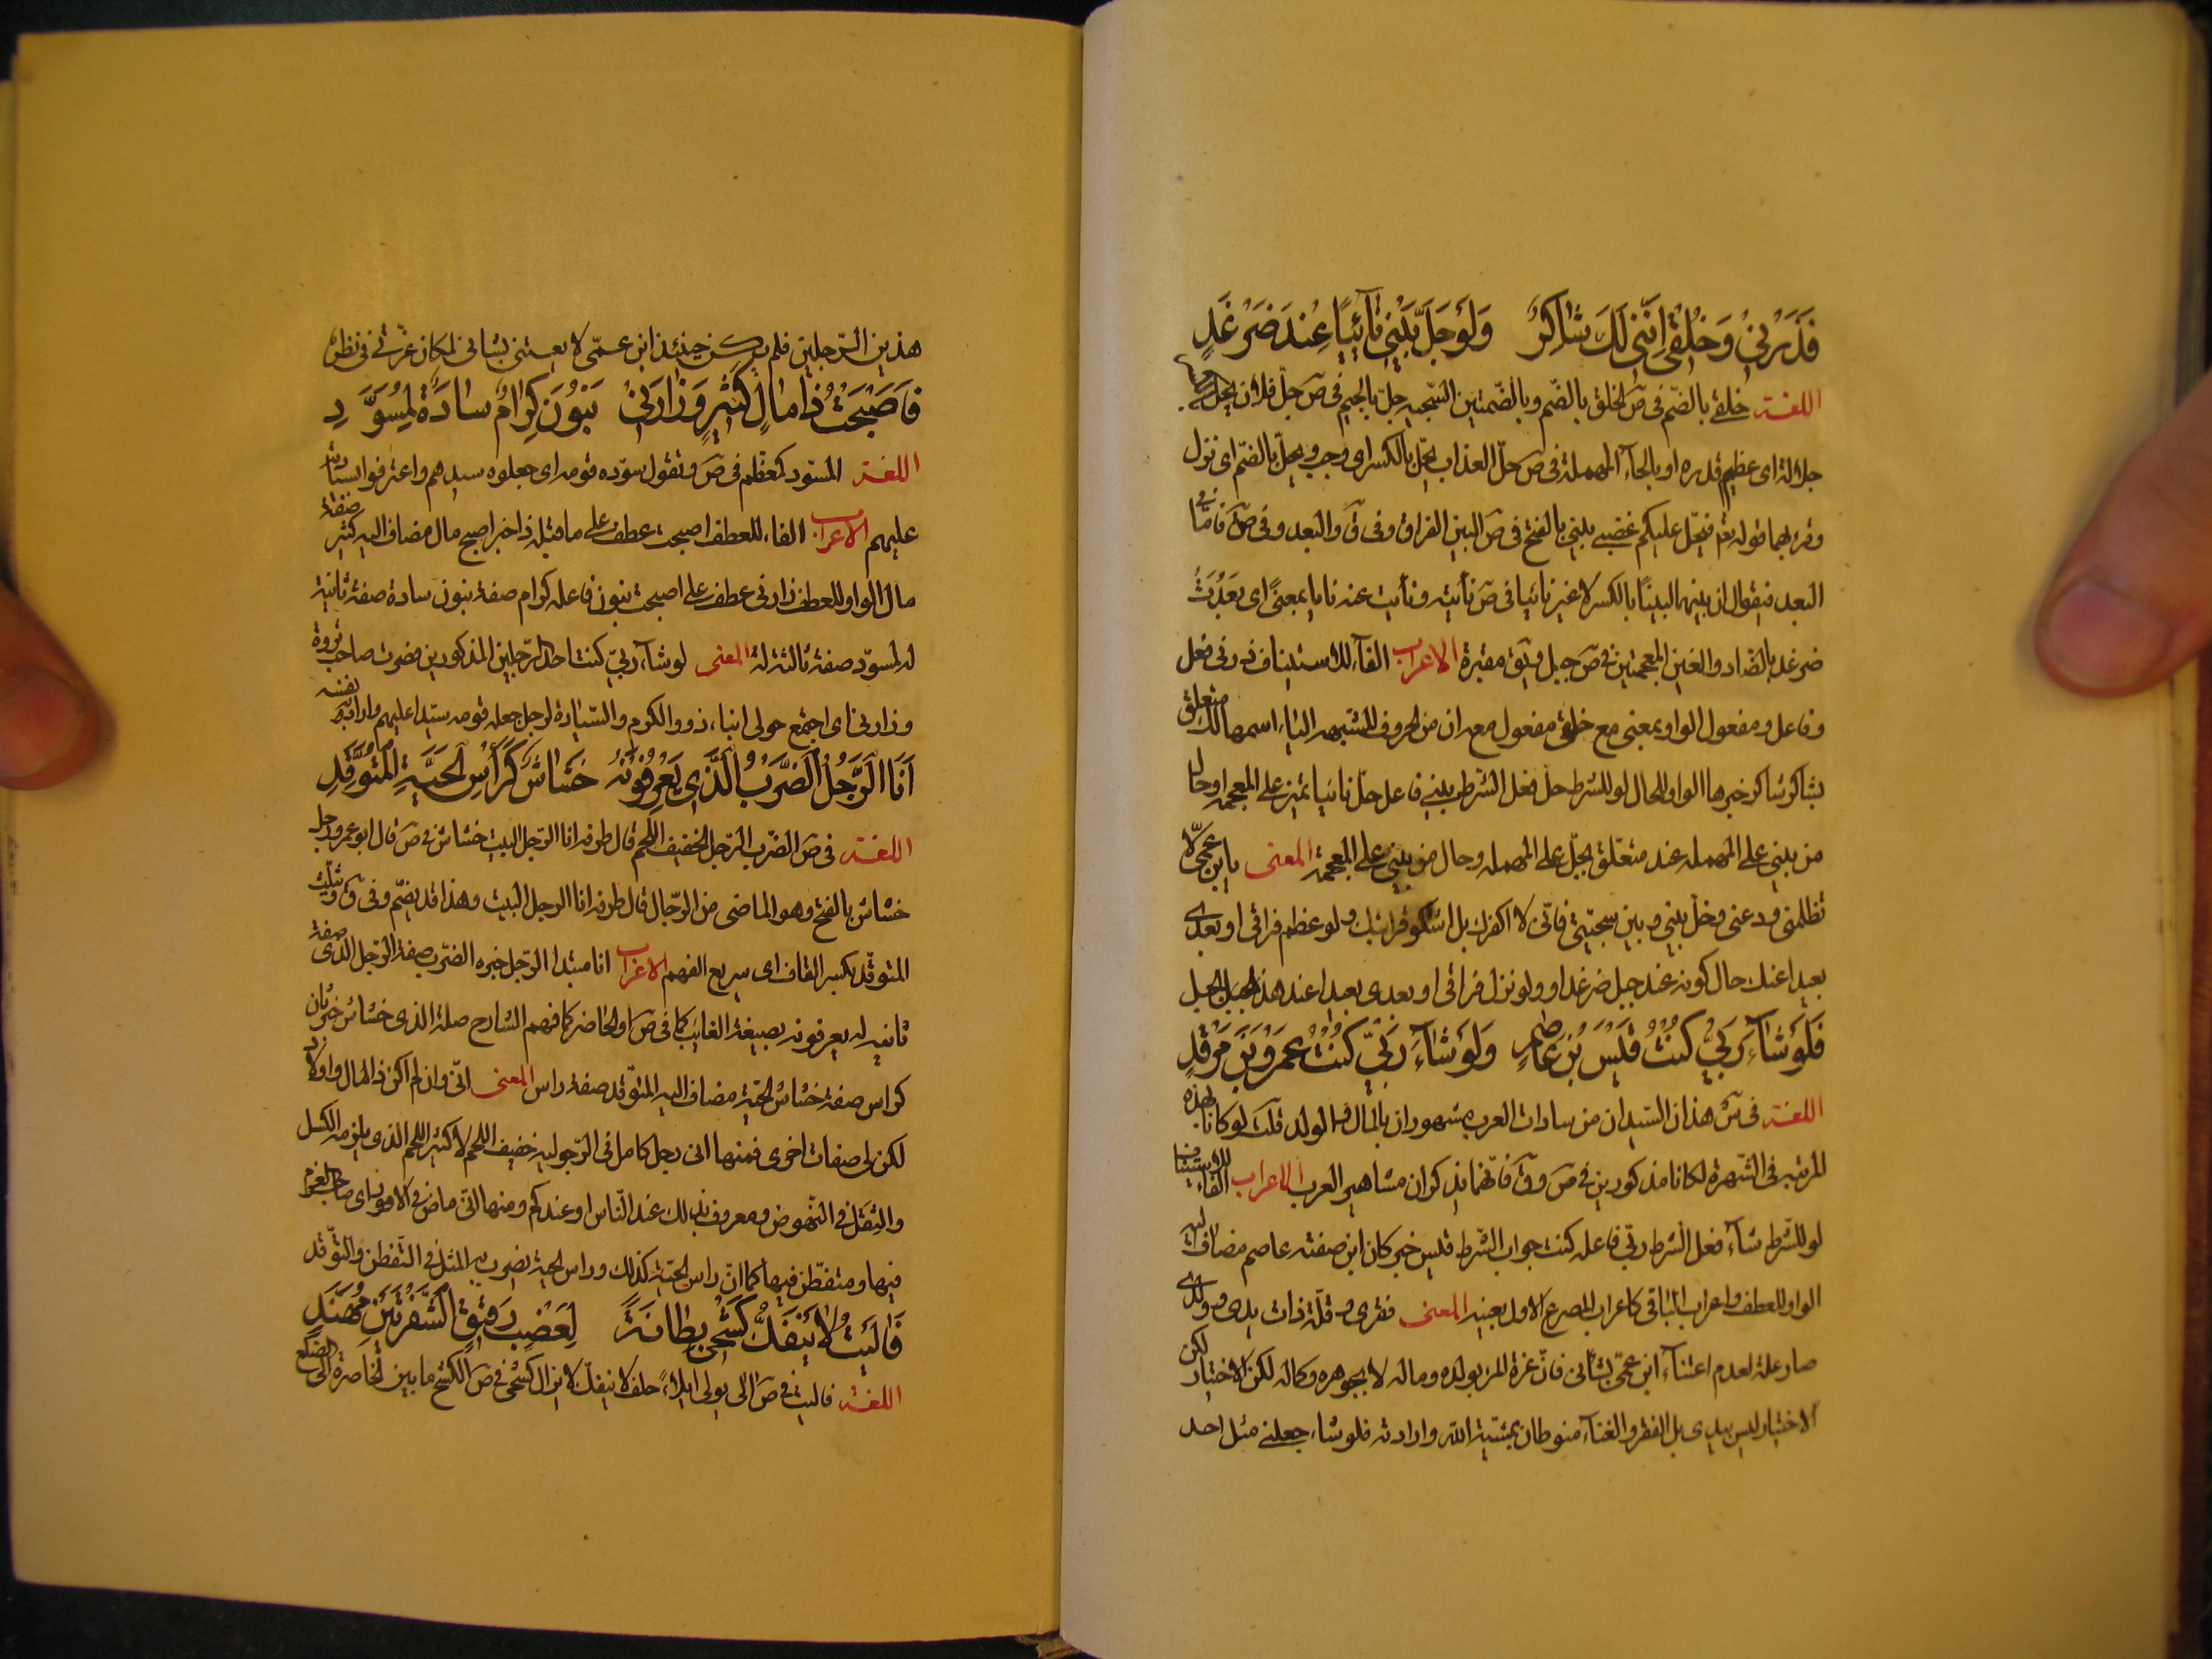 فَذَرْنِي وَخُلْقِي اِنَّنِي لَكَ شاكِرٌ وَلَوْ حَلَّ بَيْنِي نآئِيًا عِنْدَ ضَرْغَدٍ
اللغة خلقي بالضم في ص الخلق بالضم وبالضمتين السجية جل بالجيم في ص جل فلان يجل
جلالة اى عظم قدره او بالحآء المهملة في ص حل العذاب يحل بالكسر اى وجب ويحل بالضم اى نزل
وقرء بهما قوله تع فيحل عليكم غضبي بيني بالفتح في ص البين الفراق وفي ق والبعد وفي ص فاما
البعد فيقال ان بينهما لبينًا بالكسر لا غير نائيا في ص نأيته ونأيت عنه نايا بمعنًى اى بعدت
ضرغد بالضاد والغين المعجمتين في ص جبل ويق مقبرة الاعراب الفآء للاستيناف ذرنى فعل
وفاعل ومفعول الواو بمعنى مع خلقي مفعول معه ان من الحروف المشبهه الياء اسمها لك متعلق
بشاكر شاكر خبرها الواو للحال لو للشرط حل فعل الشرط بيني فاعل حل نائيا تميز على المعجمه او حال
من بيني على المهمله عند متعلق بحل على المهمله وحال من بيني على المعجمة المعنى يا ابن عمى لا
تظلمني ودعنى وخل بيني وبين سجيتي فانى لا اكفرك بل اشكر قرابتك ولو عظم فراقى او بعدى
بعيدا عنك حال كونه عند جبل ضرغد او ولو نزل فراقى او بعدى بعيدا عند هذ الجبل
فَلَوْ شآءَ رَبِّي كُنْتُ قَيْسَ بْنَ عاصِمٍ وَلَوْ شآءَ رَبِّي كُنْتُ عَمْرَوبْنَ مَرْثَدٍ
اللغة في ش هذان السيدان من سادات العرب مشهوران بالمال والولد قلت لو كانا بهذه
المرتبه في الشهرة لكانا مذكورين في ص وق فانهما يذكران مشاهير العرب الاعراب الفاء للاستيناف
لو للشرط شآء فعل الشرط ربي فاعله كنت جواب الشرط قيس خبر كان ابن صفته عاصم مضاف اليه
الواو للعطف واعراب الباقى كاعراب المصرع الاول بعينه المعنى فقرى و قلة ذات يدى و ولدى
صار علة لعدم اعتنآء ابن عمى بشانى فان عزة المرء بولده وماله لا بجوهره وكماله لكن الاختيار
الاختيار ليس بيدى بل الفقر والغنآء منوطان بمشية الله وارادته فلو شاء جعلنى مثل احد
هذين الرجلين فلم يكن حينئذ ابن عمى لا يعتنى بشانى لمكان عزتى في نظره
فَاَصْبَحْتُ ذا مالٍ كَثيرٍ وَزارَنِي بَنُونَ كِرامٌ سادَةٌ لِمُسَوَّدِ
اللغة المسود كمعظم في ص وتقول سوده قومه اى جعلوه سيدهم واعترفوا بسيادته
عليهم الاعراب الفاء للعطف اصبحت عطف على ما قبله ذا خبر اصبح مال مضاف اليه كثير صفة
مال الواو للعطف زارنى عطف على اصبحت بنون فاعله كرام صفة بنون سادة صفة ثانية
له لمسود صفة ثالثة له المعنى لو شآء ربي كنت احد الرجلين المذكورين فصرت صاحب ثروة
وزارنى اى اجتمع حولى ابناء ذوو الكرم والسيادة لرجل جعله قومه سيدا عليهم واراد به نفسه
اَنَا الرَّجُلُ الضَّرْبُ الَّذِي يَعْرِفُونَهُ خَشاشٌ كَرَأْسِ الْحَيَّةِ الْمُتَوَقِّدِ
اللغة في ص الضرب الرجل الخفيف اللحم قال طرفه انا الرجل البيت خشاش في ص قال ابو عمرو رجل
خشاش بالفتح وهو الماضى من الرجال قال طرفه انا الرجل البيت وهذا قد يضم وفي ق ويثلث
المتوقد بكسر القاف اى سريع الفهم الاعراب انا مبتدا الرجل خبره الضرب صفة الرجل الذى صفة
ثانيه له يعرفونه بصيغة الغايب كما في ص او الحاضر كما فهم الشارح صلة الذى خشاش خبر ثان
كراس صفة خشاش الحية مضاف اليه المتوقد صفة راس المعنى انى وان لم اكن ذا المال واولاد
لكن لى صفات اخرى فمنها انى رجل كامل في الرجولية خفيف اللحم لا كثير اللحم الذى يلزمه الكسل
والثقل في النهوض ومعروف بذلك عند الناس او عندكم ومنها انى ماض في الامور اى صاحب العزم
فيها ومتفطن فيها كما ان راس الحية كذلك وراس الحية يضرب به المثل في التفطن والتوقد
فَآلَيْتُ لا يَنْفَكُّ كَشْحِي بِطانَةً لِعَضْبٍ رَقيقِ الشَّفْرَتَيْنِ مُهَنَّدِ
اللغة فاليت في ص الى يولى ايلاءً حلف لا ينفك لا يزال كشحى في ص الكشح ما بين الخاصرة الى الضلع